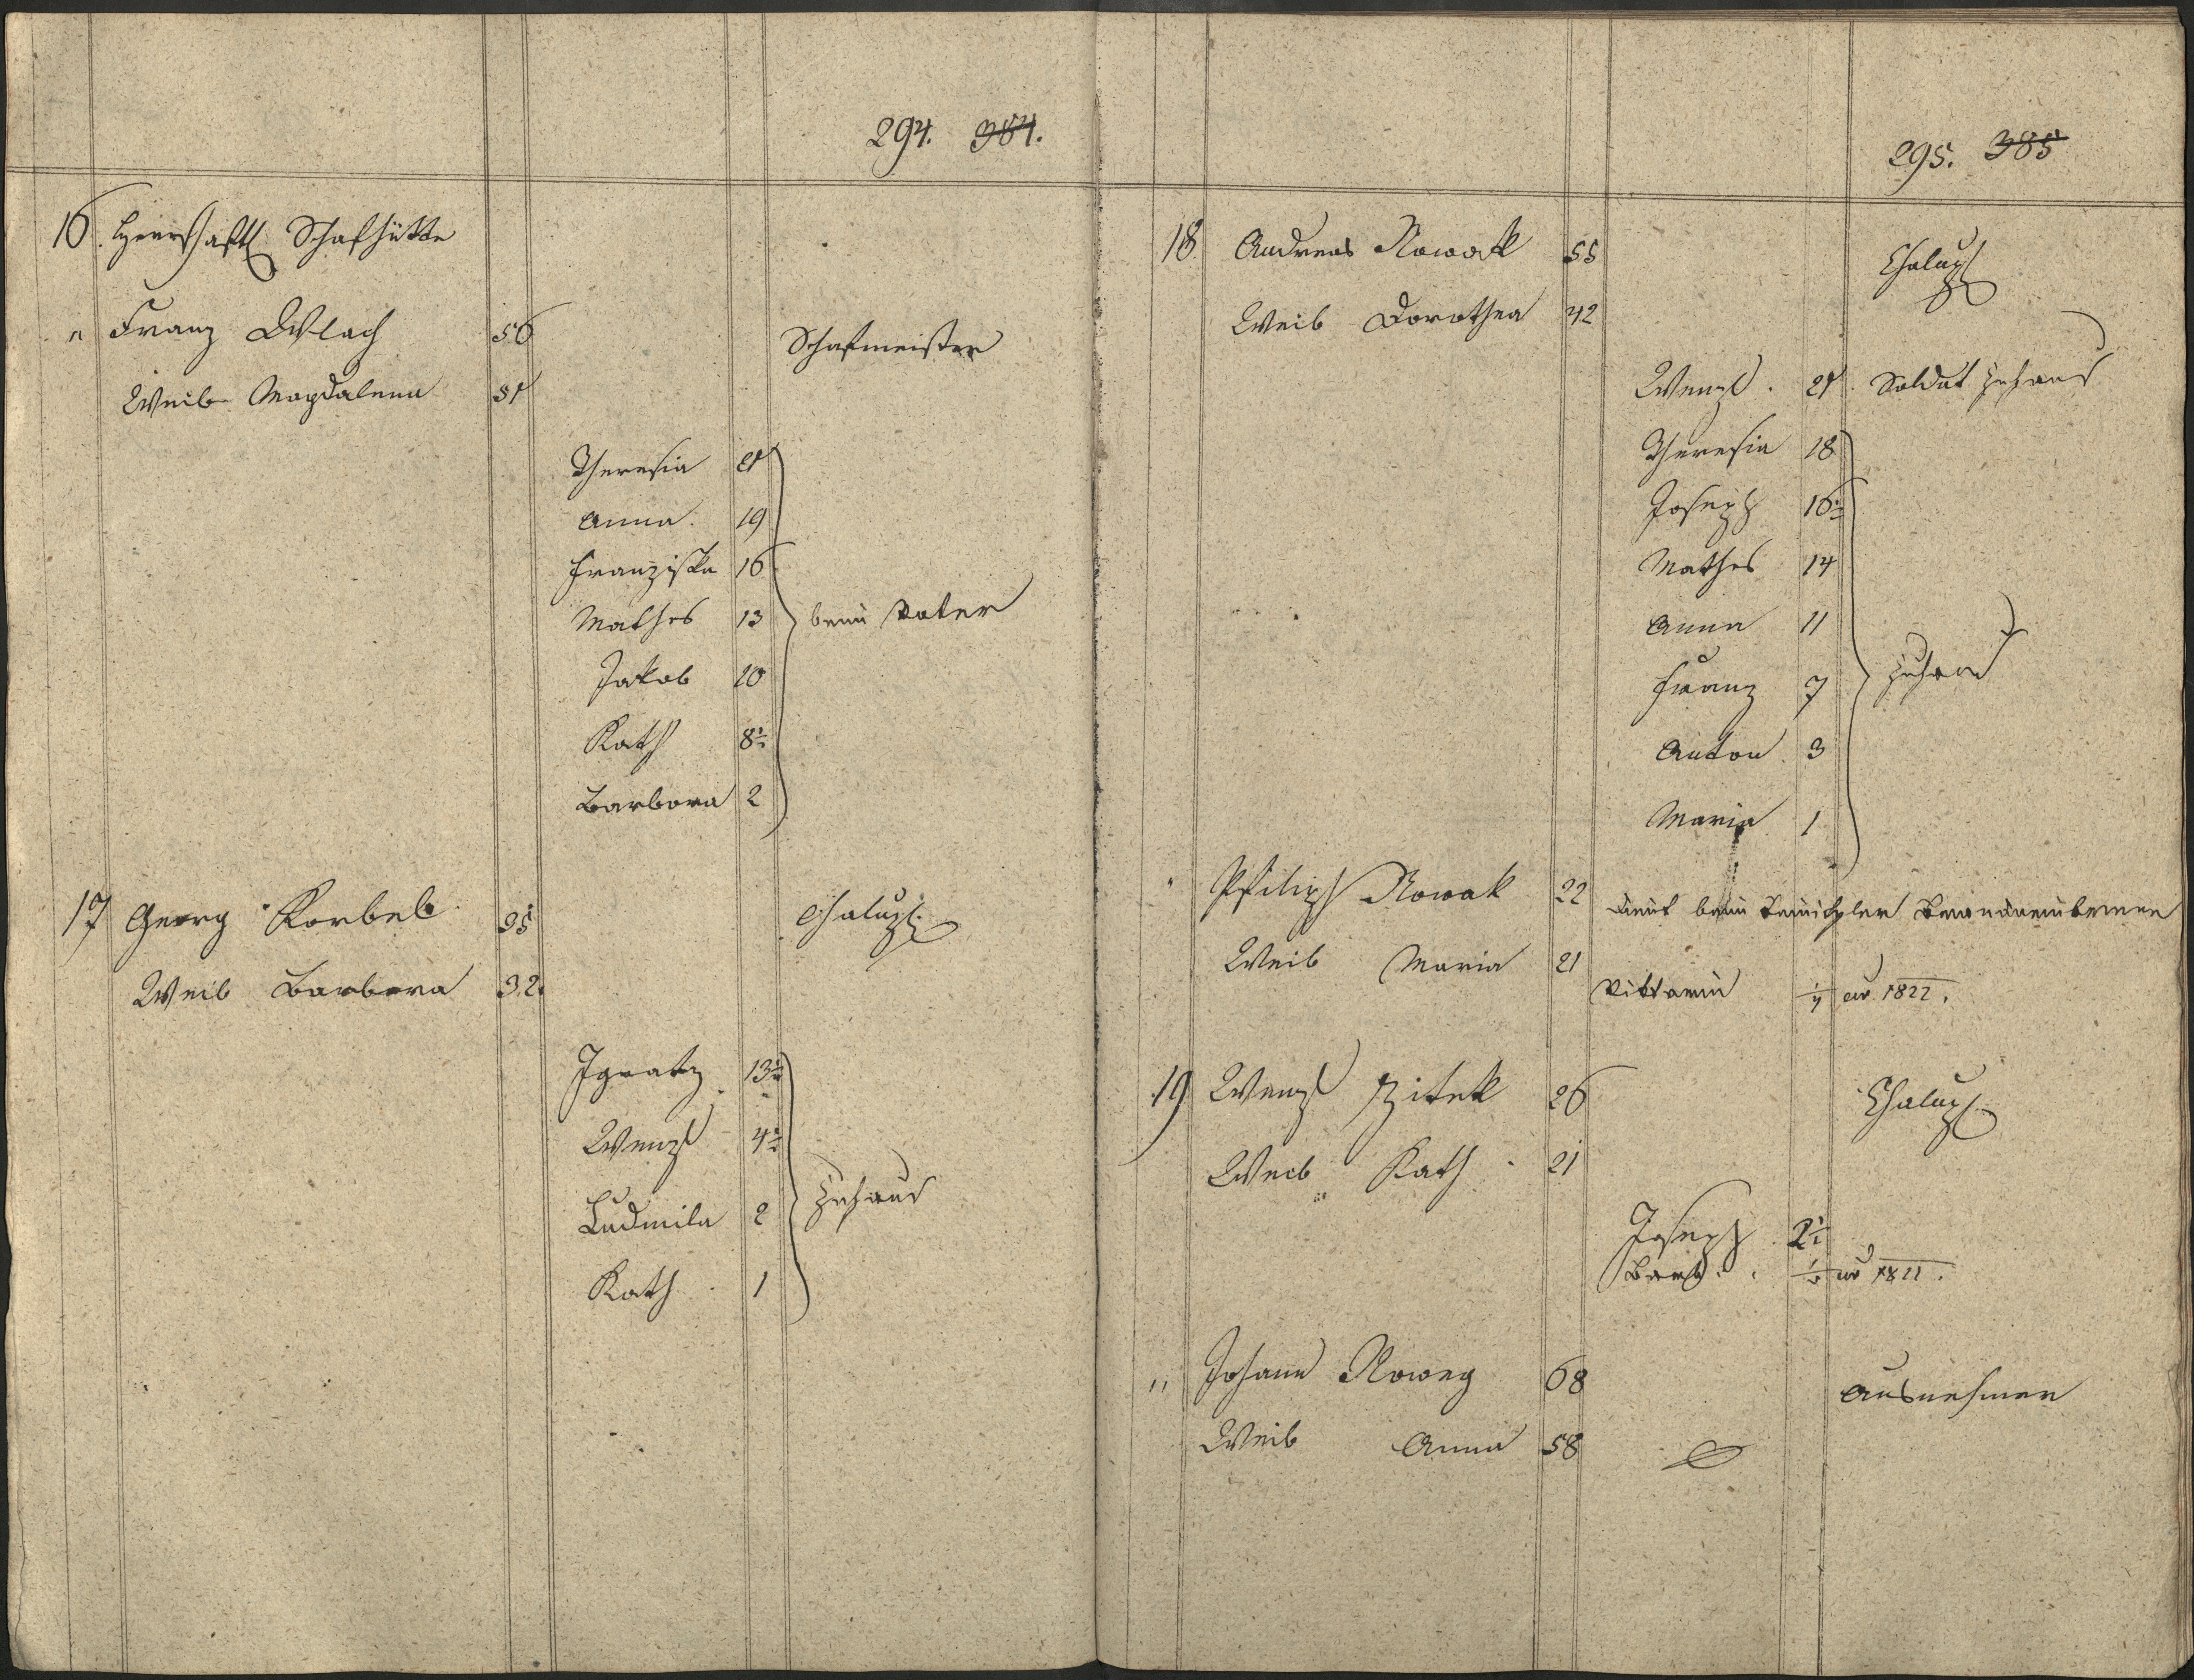 294. 384.
16. Herrschaftl Schafhütte
" Franz Wlach 56 Schafmeister
Weib Magdalena 51
Theresia 21
Anna. 19
Franziska 16
Mathes 13 beim Vater
Jakob 10
Kath 8½
Barbora 2
17 Georg Korbel 35 Chalup.
Weib Barbara 32.
Ignatz 13½
Wenzl 4½
Ludmila 2 zuhaus
Kath. 1
295. 385
18 Andreas Nowak 55 Chalup
Weib Dorothea 42
Wenzl. 21 Soldat zuhaus
Theresia 18
Joseph 16½
Mathes 14
Anna 11
Franz 7 zuhaus
Anton 3
Maria 1
" Philipp Nowak 22 dient beim
Weib Maria 21
1822.
19 Wenzl Zitek 26 Chalup.
Weib Kath 21
Joseph 2½
Barb.
" Johann Nowey 68 Ausnehmer
Weib Anna 58